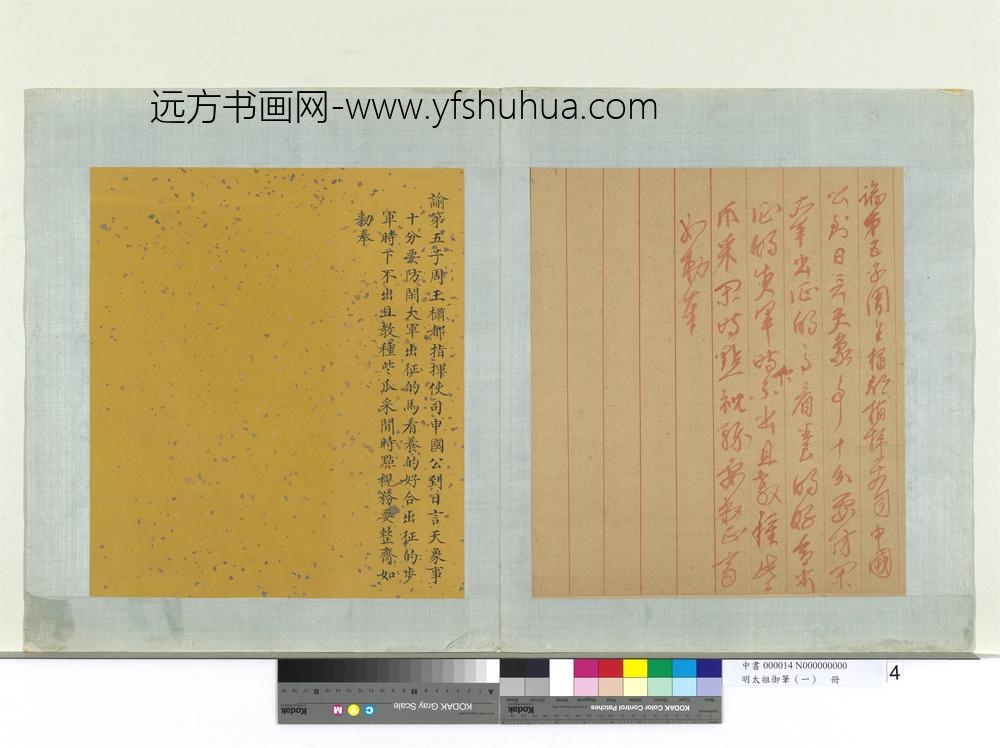 远方书画网-www.yfshuhua.com
諭第五子周王橚都指揮使司申國
公到日言天象事十分要防閑
大軍出征的馬看養的好合出
征的步軍時下不出且教種些
瓜采閑時點視務要整齊
如勅奉
諭第五子周王橚都指揮使司申國公到日言天象事
十分要防閑大軍出征的馬看養的好合出征的步
軍時下不出且教種些瓜采閒時點視務要整齊如
勅奉
KODAK Gray Scale
Kodak
C Y M
KODAK Color Control Patches
Kodak
中書 000014 N000000000
明太祖御筆（一） 冊
4